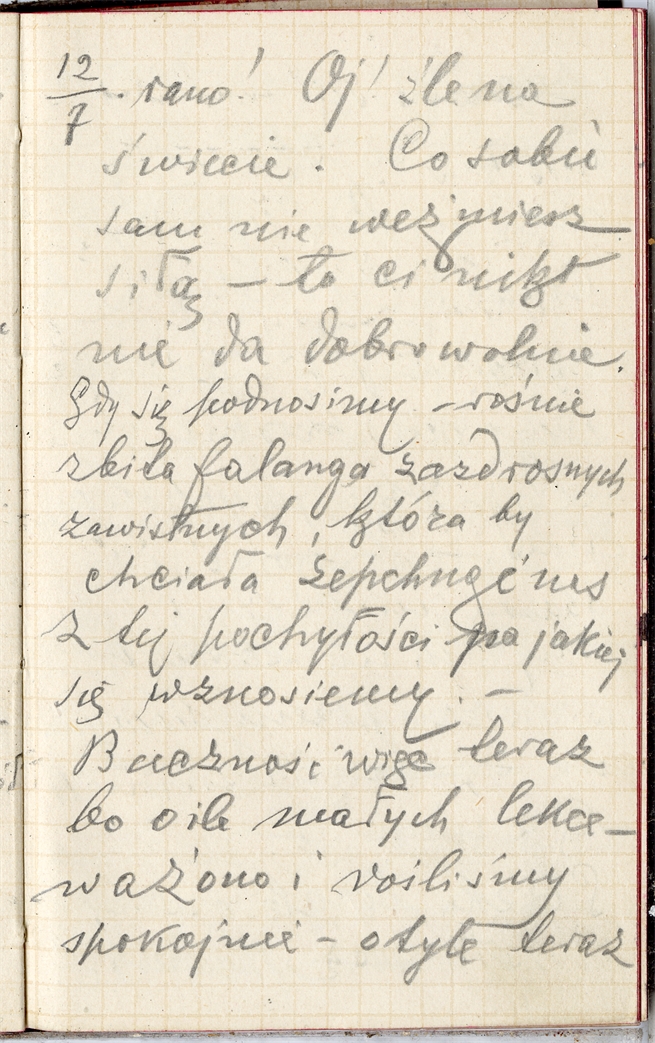 12/7. rano! Oj! źle na
świecie. Co sobie
sam nie weźmiesz
siłą – to ci nikt
nie da dobrowolnie.
Gdy się podnosimy – rośnie
zbita falanga zazdrosnych
zawistnych, która by
chciała zepchnąć nas
z tej pochyłości na jakiej
się wznosiemy. –
Baczność więc teraz
bo o ile małych lekce–
ważono i rośliśmy
spokojnie – o tyle teraz